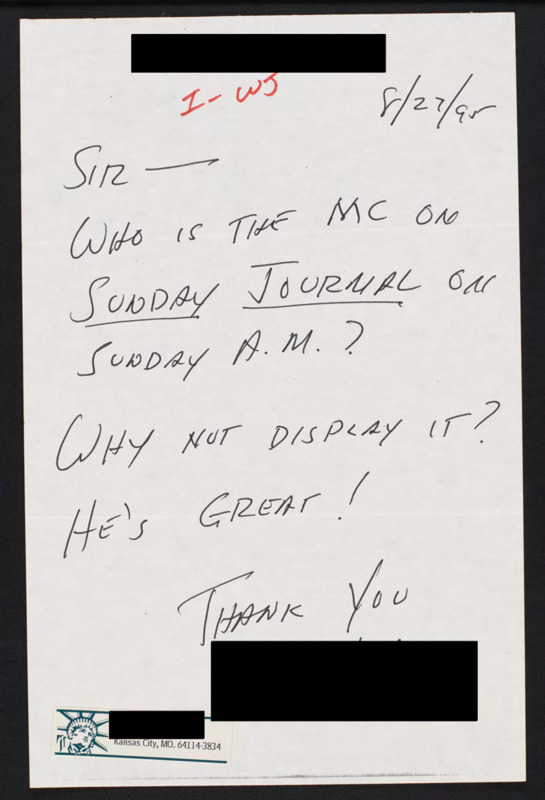 I-WJ
8/27/95
SIR —
WHO IS THE MC ON
SUNDAY JOURNAL ON
SUNDAY A.M.?
WHY NOT DISPLAY IT?
HE'S GREAT!
THANK YOU
Kansas City, MO. 64114-3834